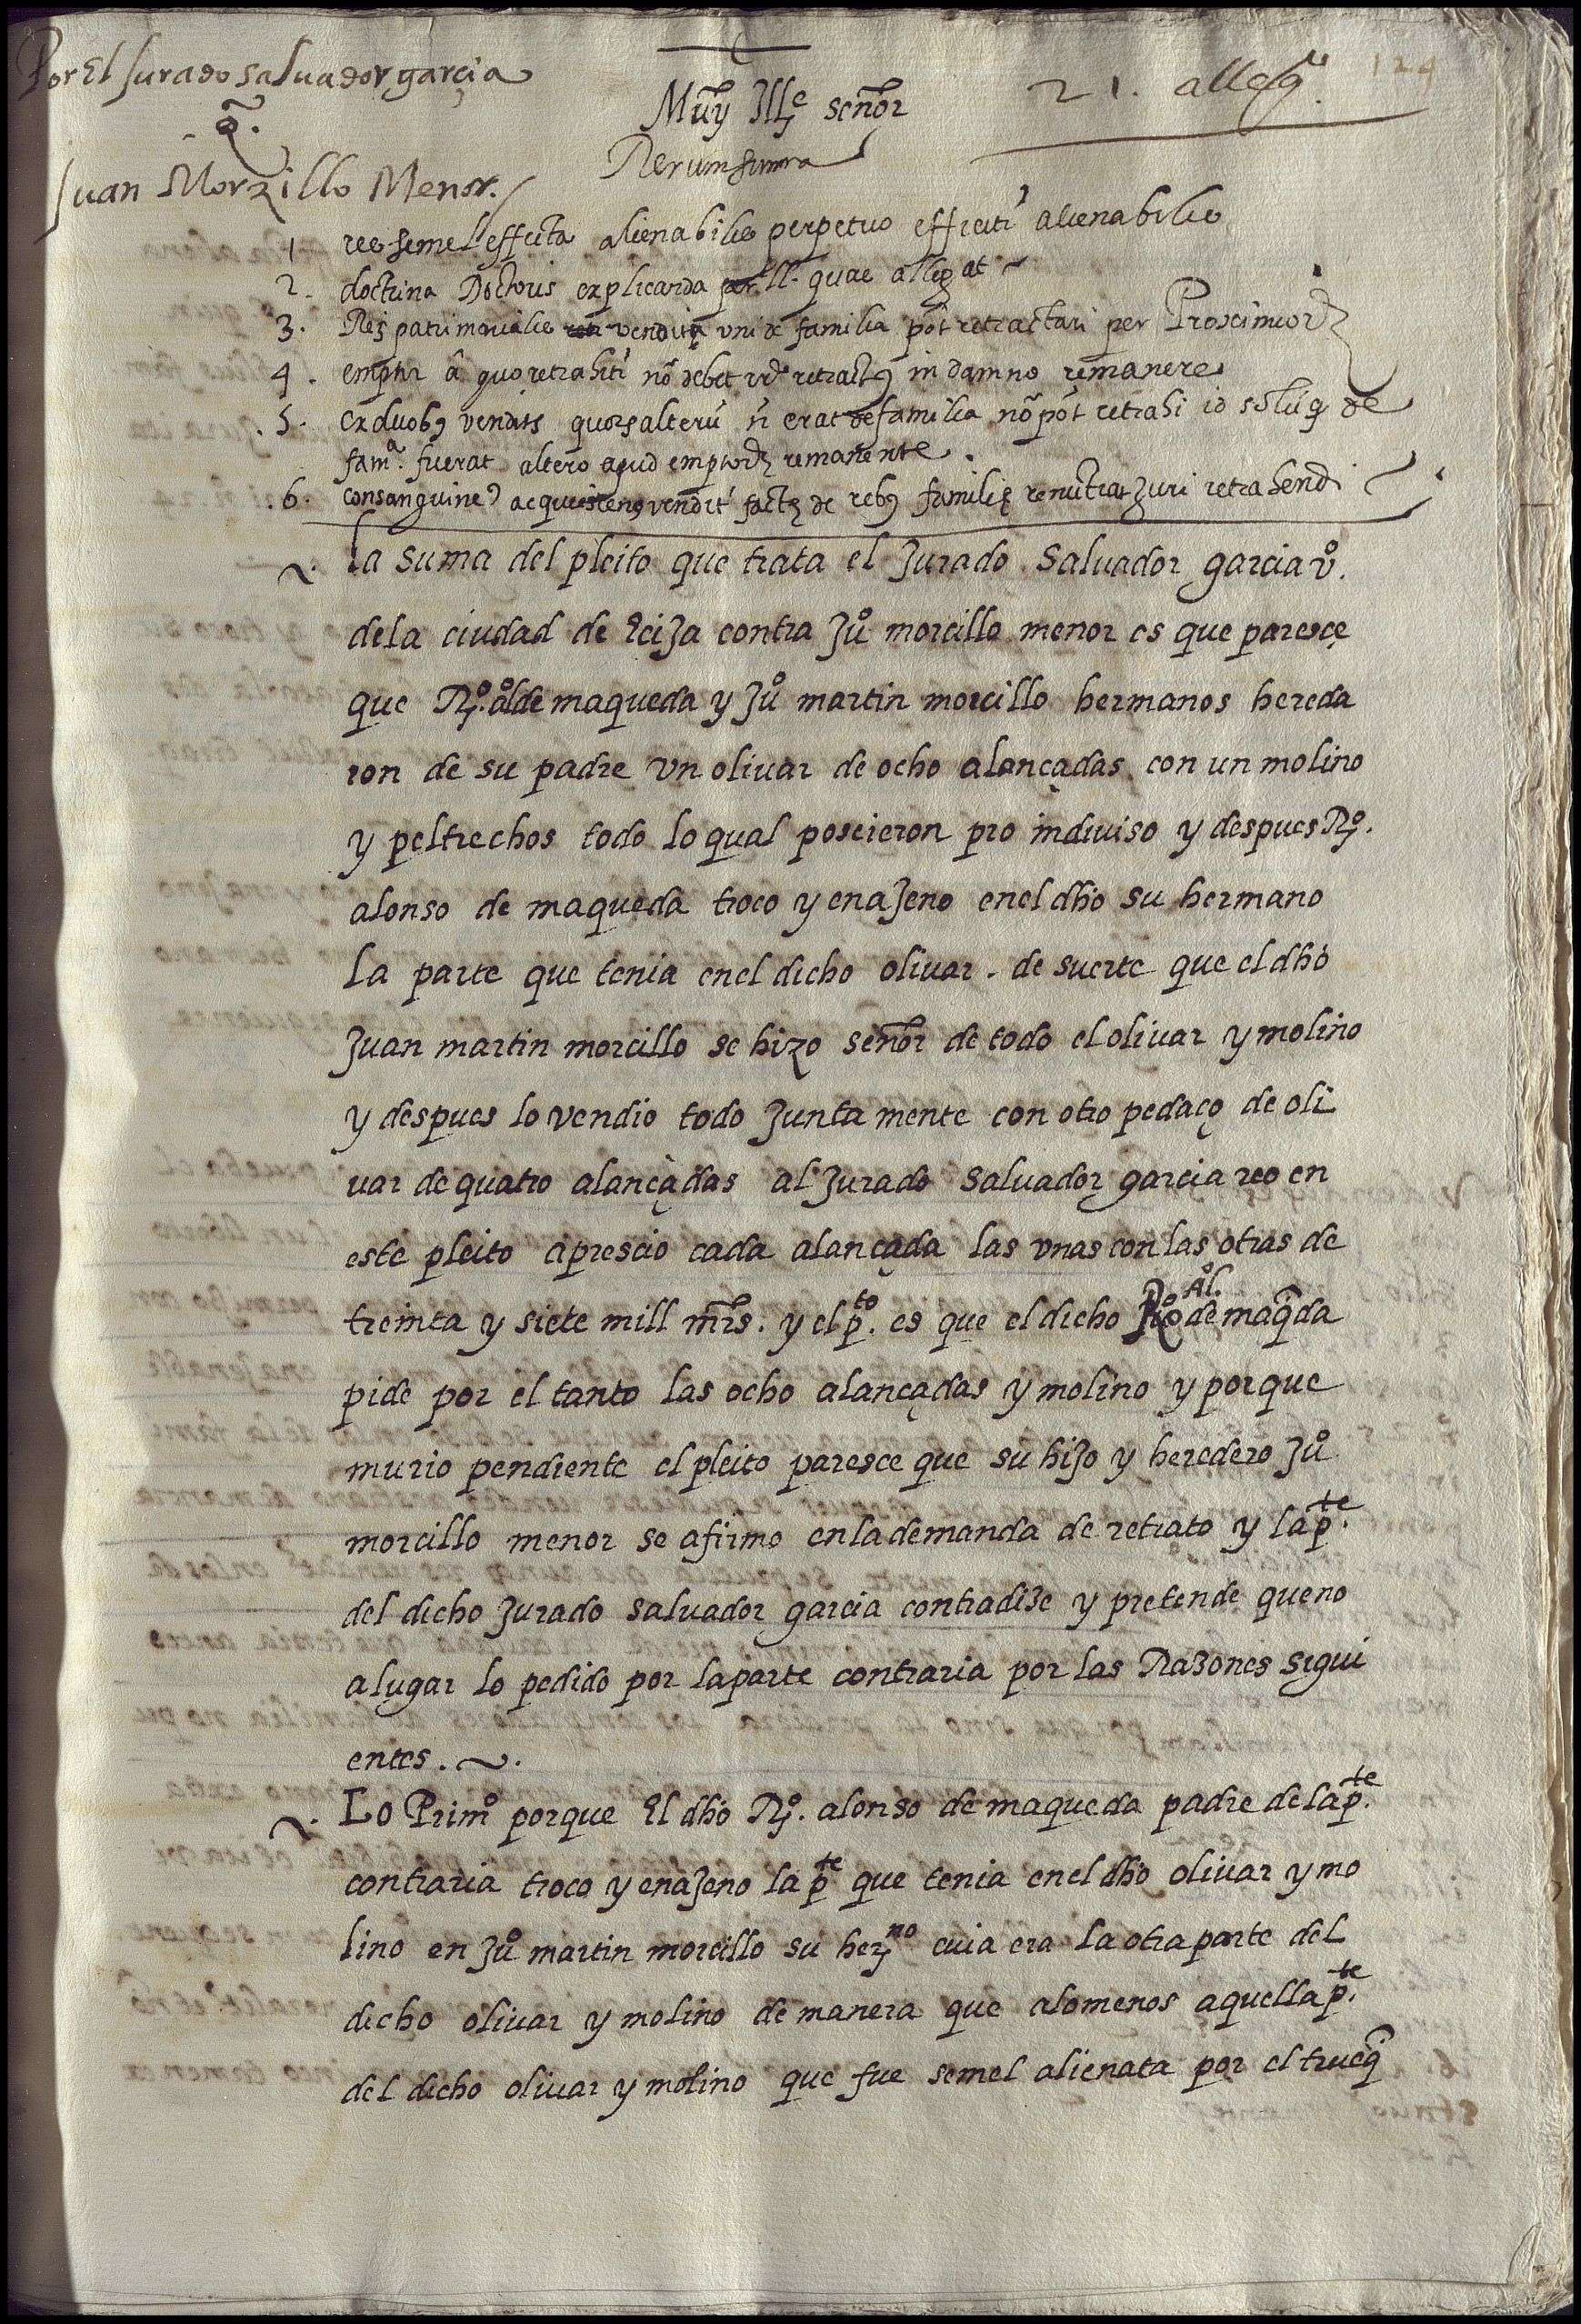 Por El Jurado salvador garçia
Muy Ille señor
21. alleg
124
Rerum summa
Juan Morzillo Menor.
1 res semel effecta alienabilis perpetuo efficit alienabilis
2. doctrina Doctoris explicanda per ll. quae allegat
3. Res patrimonialis vendita uni de familia pōt retractari per Proximior
4. emptor â quo retrahit nō debet retract in damno remanere
5. ex duob venditis quor alterū erat de familia nō pōt retrahi id
famª. fuerat altero apud emptor remanente.
6. consanguine acquiescens vendit fact de reb familie renuntiat juri retrahendi
La suma del pleito que trata el Jurado Salvador garcia vº.
dela ciudad de EciJa contra Juº morcillo menor es que paresçe
que Rº. alº de maqueda y Juº martin morcillo hermanos hereda
ron de su padre vn olivar de ocho alançadas con un molino
y peltrechos todo lo qual poseieron pro indiviso y despues Rº.
alonso de maqueda troco y enaJeno enel dho su hermano
la parte que tenia enel dicho olivar. de suerte que el dho
Juan martin morcillo se hizo señor de todo el olivar y molino
y despues lo vendio todo Junta mente con otro pedaço de oli
var de quatro alançadas al Jurado Salvador garcia reo en
este pleito a prescio cada alançada las vnas con las otras de
treinta y siete mill mrs. y el pto. es que el dicho Rº Al. de maqda
pide por el tanto las ocho alançadas y molino y porque
murio pendiente el pleito paresce que su hiJo y heredero Juº
morcillo menor se afirmo enla demanda de retrato y la pte.
del dicho Jurado salvador garcia contradize y pretende que no
a lugar lo pedido por la parte contraria por las Razones sigui
entes.
Lo Primº porque El dho Rº. alonso de maqueda padre de la pte.
contraria troco y enaJeno la pte que tenia enel dho olivar y mo
lino en Juº martin morcillo su herno cuia era la otra parte del
dicho olivar y molino de manera que alomenos aquella pte.
del dicho olivar y molino que fue semel alienata por el trueq